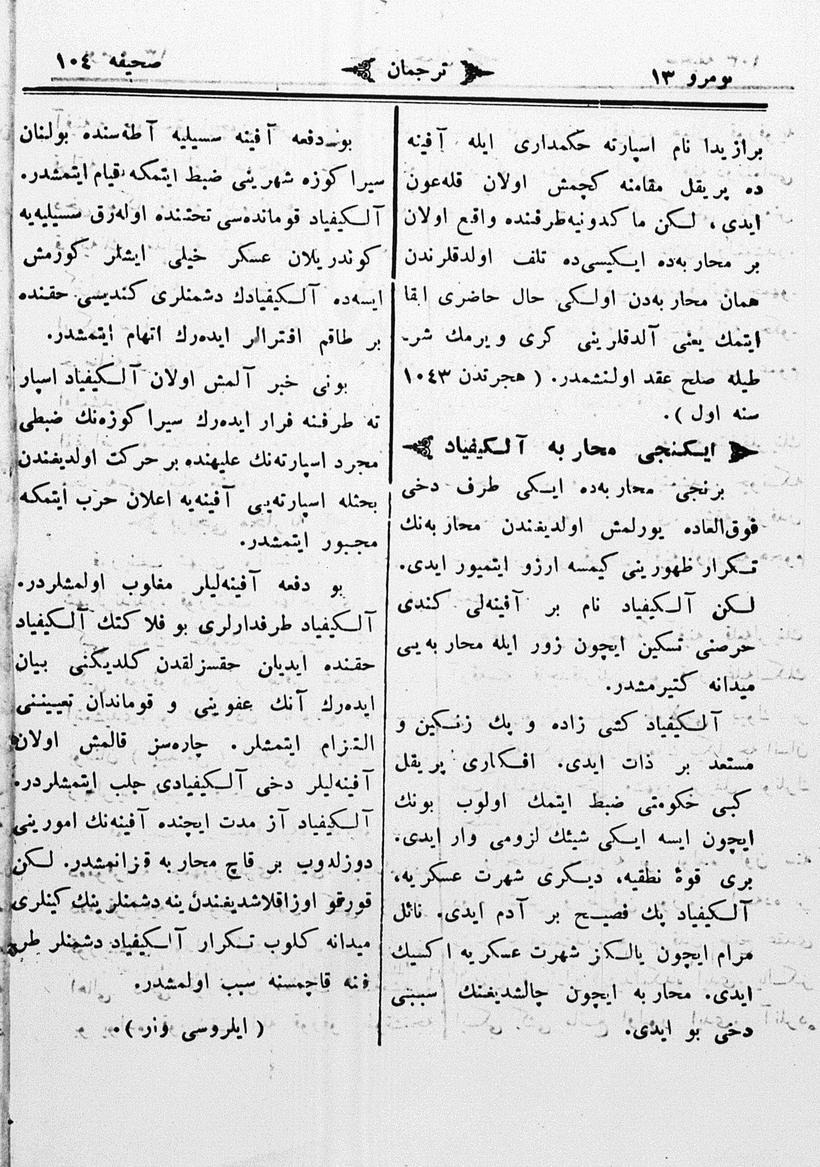 نومرو ١٣
ترجمان
صحيفه ١٠٤
برازيدا نام اسپارته حكمدارى ايله آفينه
ده پريقل مقامنه كچمش اولان قله‌عون
ايدى، لكن ماكدونيه‌طرفنده واقع اولان
بر محاربه‌ده ايكيسى‌ده تلف اولدقلرندن
همان محاربه‌دن اولكى حال حاضرى ابقا
ايتمك يعنى آلدقلرينى كرى ويرمك شر-
طيله صلح عقد اولنشمدر. (هجرتدن ١٠٤٣
سنه اول).
ايكنجى محاربه آلكيفياد
برنجى محاربه‌ده ايكى طرف دخى
فوق‌العاده يورلمش اولديغندن محاربه‌نك
تكرار ظهورينى كيمسه ارزو ايتميور ايدى.
لكن آلكيفياد نام بر آفينه‌لى كندى
حرصنى تسكين ايچون زور ايله محاربه‌يى
ميدانه كتيرمشدر.
آلكيفياد كشى زاده و پك زنكين و
مستعد بر ذات ايدى. افكارى پريقل
كبى حكومتى ضبط ايتمك اولوب بونك
ايچون ايسه ايكى شيئك لزومى وار ايدى.
برى قوۀ نطقيه، ديكرى شهرت عسكريه،
آلكيفياد پك فصيح بر آدم ايدى. نائل
مرام ايچون يالكز شهرت عسكريه اكسيك
ايدى. محاربه ايچون چالشديغنك سببى
دخى بو ايدى.
بو دفعه آفينه سسيليه آطه‌سنده بولنان
سيراكوزه شهرينى ضبط ايتمكه قيام ايتمشدر.
آلكيفياد قومانده‌سى تحتنده اوله‌رق سسيليه‌يه
كوندريلان عسكر خيلى ايشلر كورمش
ايسه‌ده آلكيفيادك دشمنلرى كنديسى حقنده
بر طاقم افترالر ايده‌رك اتهام ايتمشدر.
بونى خبر آلمش اولان آلكيفياد اسپار
ته طرفنه فرار ايده‌رك سيراكوزه‌نك ضبطى
مجرد اسپارته‌نك عليهنده بر حركت اولديغندن
بحثله اسپارته‌يى آفينه‌يه اعلان حرب ايتمكه
مجبور ايتمشدر.
بو دفعه آفينه‌ليلر مغلوب اولمشلردر.
آلكيفياد طرفدارلرى بو فلاكتك آلكيفياد
حقنده ايديان حقسزلقدن كلديگنى بيان
ايده‌رك آنك عفوينى و قوماندان تعييننى
التزام ايتمشلر. چاره‌سز قالمش اولان
آفينه‌ليلر دخى آلكيفيادى جلب ايتمشلردر.
آلكيفياد آز مدت ايچنده آفينه‌نك امورينى
دوزلدوب بر قاچ محاربه قزانمشدر. لكن
قورقو اوزاقلاشديغندن ينه دشمنلرينك كينلرى
ميدانه كلوب تكرار آلكيفياد دشمنلر طر
فنه قاچمسنه سبب اولمشدر.
(ايلروسى وار).